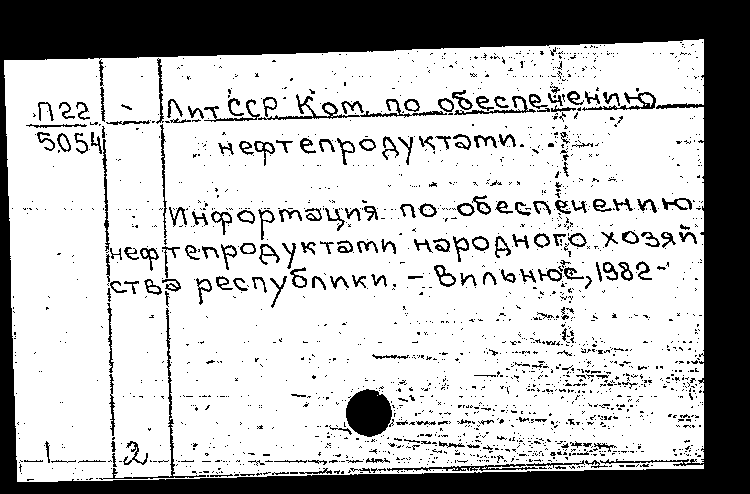 П22 - ЛитССР Ком. по обеспечению
5054 нефтепродуктами.
Информация по обеспечению
нефтепродуктами народного хозяй-
ства республики. - Вильнюс, 1982-
1 2